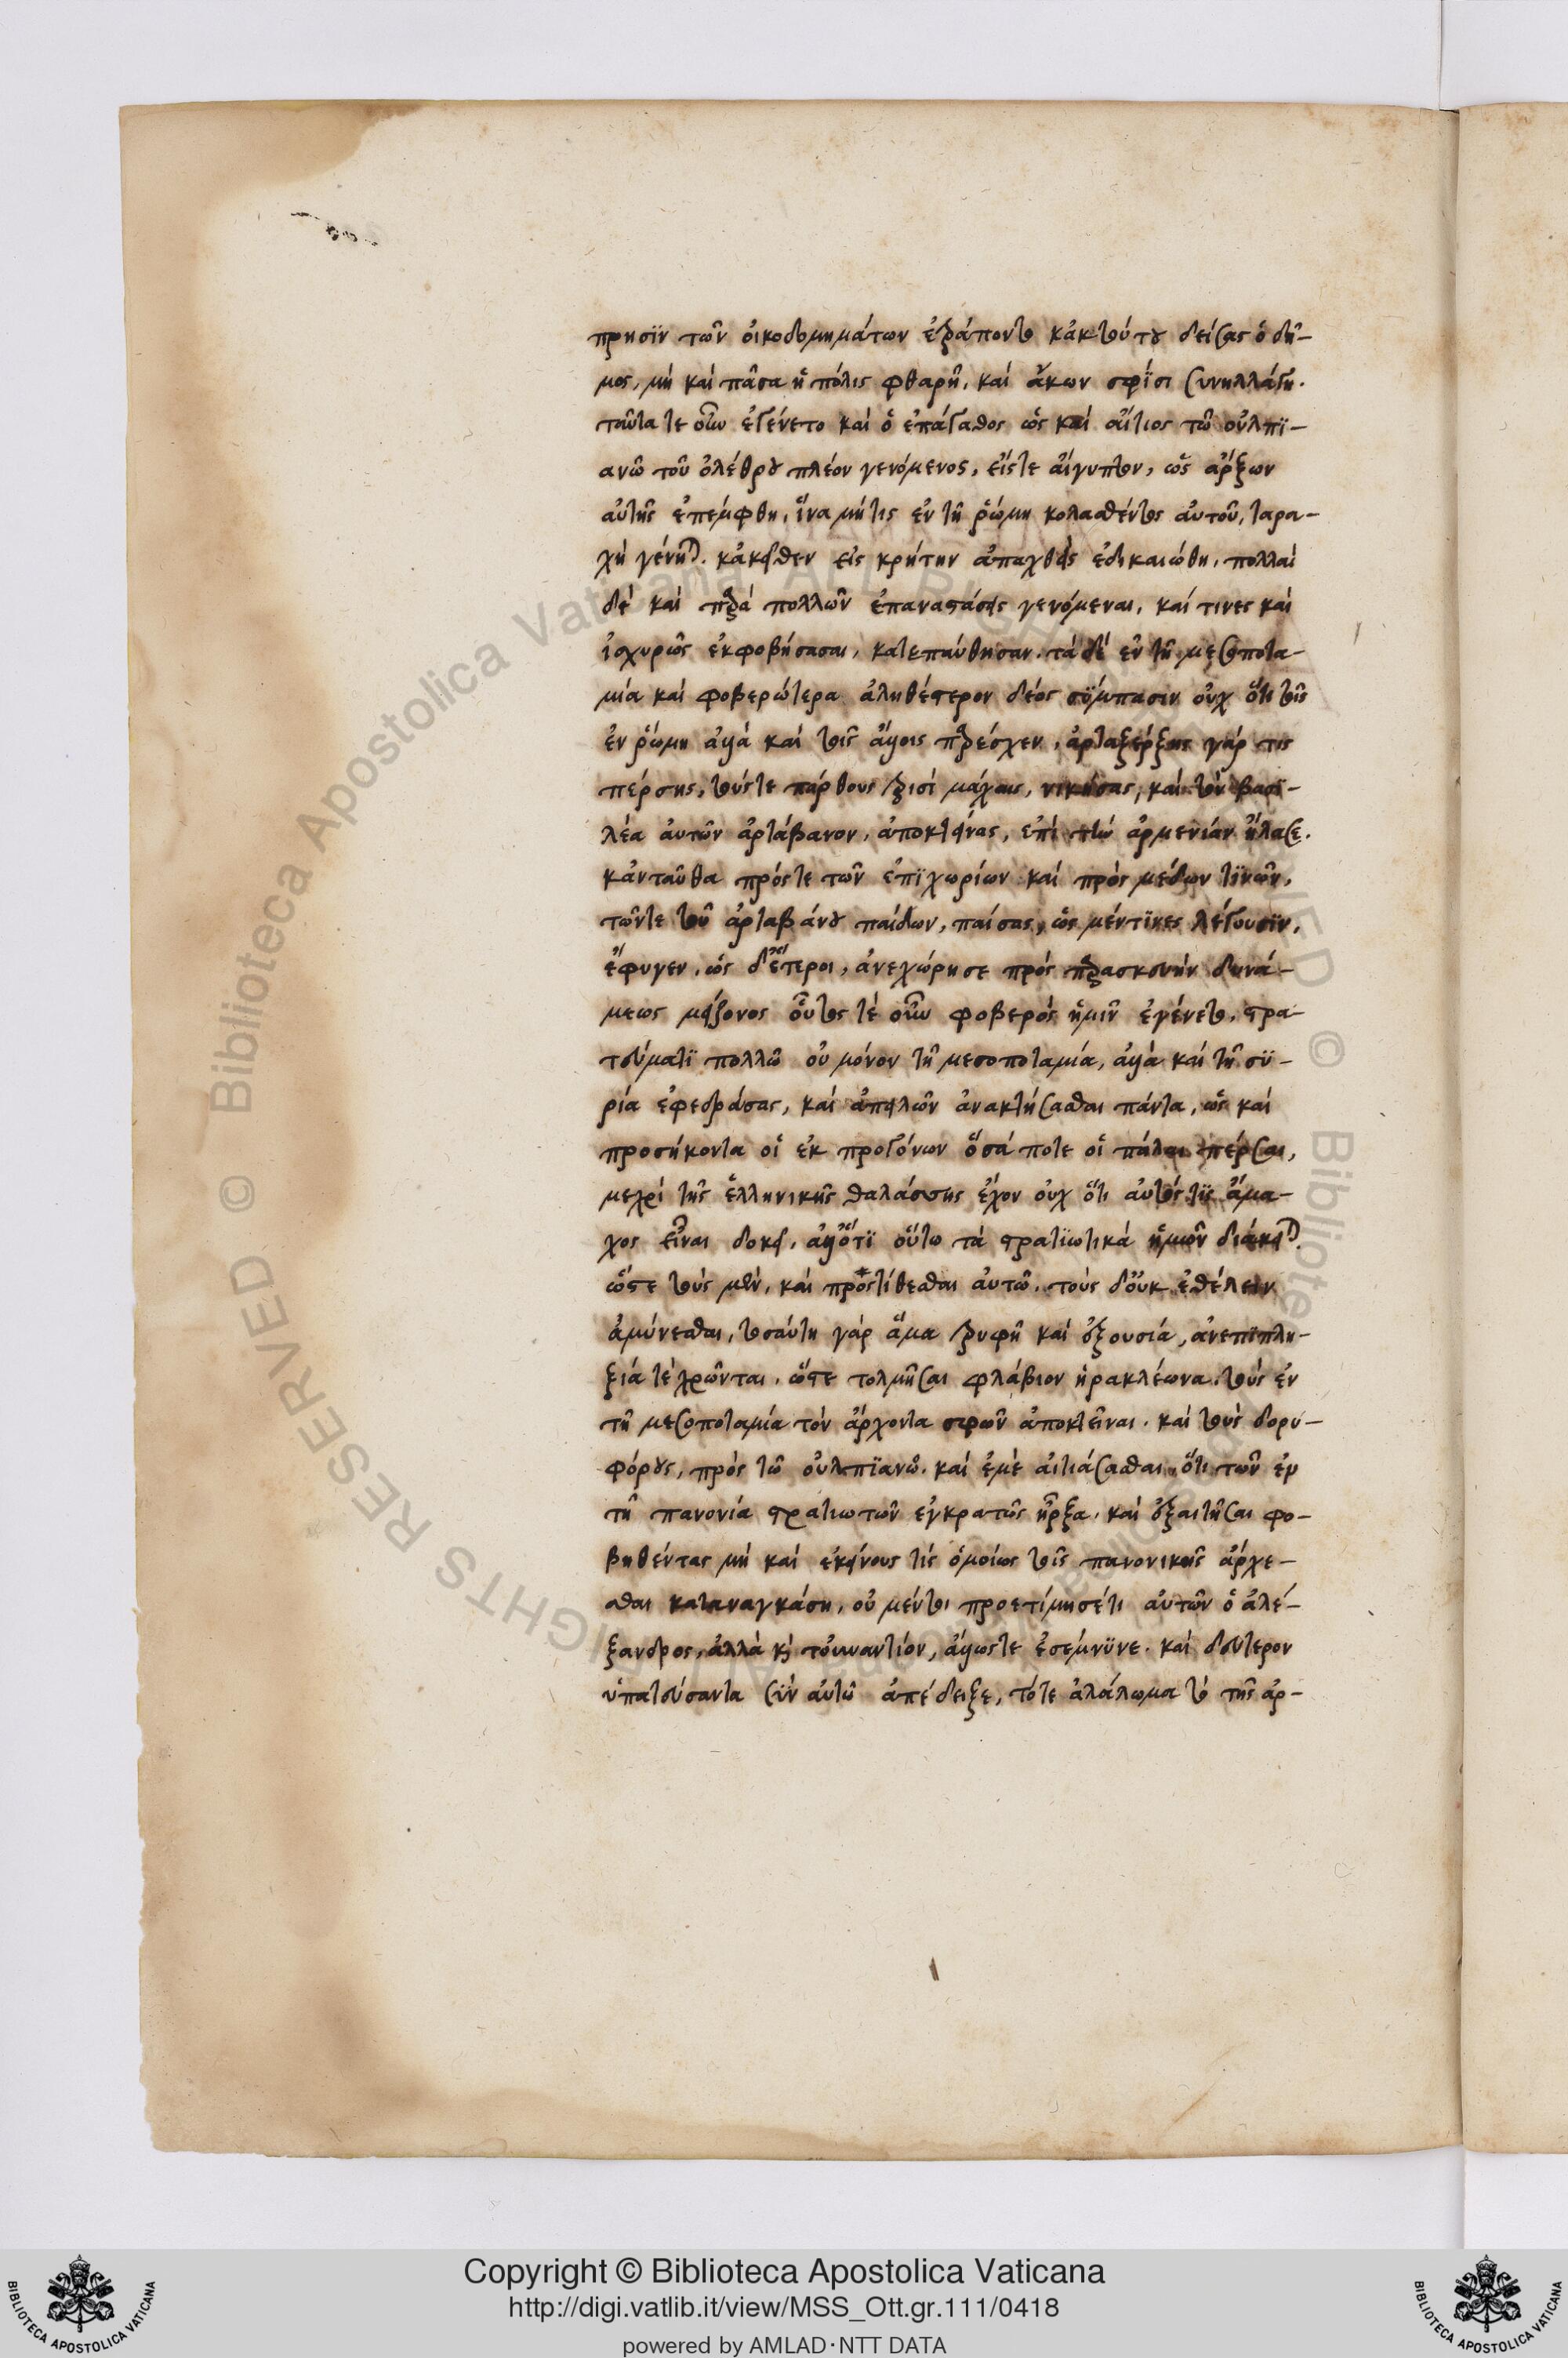 πρησϊν τῶν οἰκοδομημάτων ἐτράποντο κἀκ τούτου δείσας ὁ δῆ-
μος, μὴ καὶ πᾶσα ἡ πόλις φθαρῇ, καὶ ἄκων σφίσι συνηλλάγη.
ταῦτα τε οὖν ἐγένετο καὶ ὁ ἐπάγαθος ὡς καὶ αἴτιος τῶ οὐλπϊ-
ανῶ τοῦ ὀλέθρου πλέον γενόμενος, εἴς τε αἴγυπτον, ὡς ἄρξων
αὐτῆς ἐπέμφθη, ἵνα μήτις ἐν τῇ ῥώμη κολασθέντος αὐτοῦ, ταρα-
χὴ γένηται. κἀκεῖθεν εἰς κρήτην ἀπαχθεὶς ἐδικαιώθη, πολλαὶ
δὲ καὶ παρὰ πολλῶν ἐπαναστάσεις γενόμεναι, καί τινες καὶ
ἰσχυρῶς ἐκφοβήσασαι, κατεπαύθησαν. τὰ δὲ ἐν τῇ μεσοποτα-
μία καὶ φοβερώτερα ἀληθέστερον δέος σϋμπασιν οὐχ ὅτι τοῖς
ἐν ῥώμη ἀλλὰ καὶ τοῖς ἄλλοις παρέσχεν, ἀρταξέρξης γάρ τις
πέρσης, τούς τε πάρθους τρισὶ μάχαις, νικήσας, καὶ τὸν βασι-
λέα αὐτῶν ἀρτάβανον, ἀποκτείνας, ἐπὶ τὴν ἀρμενίαν ἤλασε.
κἀνταῦθα πρός τε τῶν ἐπϊχωρίων καὶ πρὸς μέδων τϊνῶν,
τῶν τε τοῦ ἀρταβάνου παίδων, παίσας, ὡς μέν τϊνες λέγουσϊν,
ἔφυγεν, ὡς δ' ἕτεροι, ἀνεχώρησε πρὸς παρασκευὴν δυνά-
μεως μείζονος οὗτος τὲ οὖν φοβερὸς ἡμῖν ἐγένετο, στρα-
τεύματϊ πολλῶ οὐ μόνον τῇ μεσοποταμία, ἀλλὰ καὶ τῇ σϋ-
ρία ἐφεδράσας, καὶ ἀπειλῶν ἀνακτήσασθαι πάντα, ὡς καὶ
προσήκοντα οἱ ἐκ προγόνων ὅσά ποτε οἱ πάλαι πέρσαι,
μεχρὶ τῆς ἑλληνικῆς θαλάσσης ἔχον οὐχ ὅτι αὐτός τϊς ἄμα-
χος εἶναι δοκεῖ, ἀλλ' ὅτϊ οὕτω τὰ στρατϊωτικὰ ἡμῶν διάκειται
ὥστε τοὺς μὲν, καὶ προστίθεσθαι αὐτῶ, τοὺς δ' οὐκ ἐθέλειν
ἀμύνεσθαι, τοσαύτη γὰρ ἅμα τρυφῇ καὶ ἐξουσία, ἀνεπϊπλη-
ξία τὲ χρῶνται, ὥστε τολμῆσαι φλάβιον ἡρακλέωνα, τοὺς ἐν
τῇ μεσοποταμία τὸν ἄρχοντα σφῶν ἀποκτεῖναι. καὶ τοὺς δορυ-
φόρους, πρὸς τῶ οὐλπϊανῶ. καὶ ἐμὲ αἰτιάσασθαι, ὅτι τῶν ἐν
τῇ πανονία στρατιωτῶν ἐγκρατῶς ἦρξα, καὶ ἐξαιτῆσαι φο-
βηθέντας μὴ καὶ ἐκείνους τὶς ὁμοίως τοῖς πανονικοῖς ἄρχε-
σθαι καταναγκάση, οὐ μέντοι προετίμησέ τι αὐτῶν ὁ ἀλέ-
ξανδρος, ἀλλὰ καὶ τοὐναντίον, ἄλλως τε ἐσέμνϋνε. καὶ δεύτερον
ὑπατεύσαντα σὺν αὐτῶ ἀπέδειξε, τό τε ἀλάλωμα τὸ τῆς ἀρ-
Copyright © Biblioteca Apostolica Vaticana
http://digi.vatlib.it/view/MSS_Ott.gr.111/0418
powered by AMLAD·NTT DATA